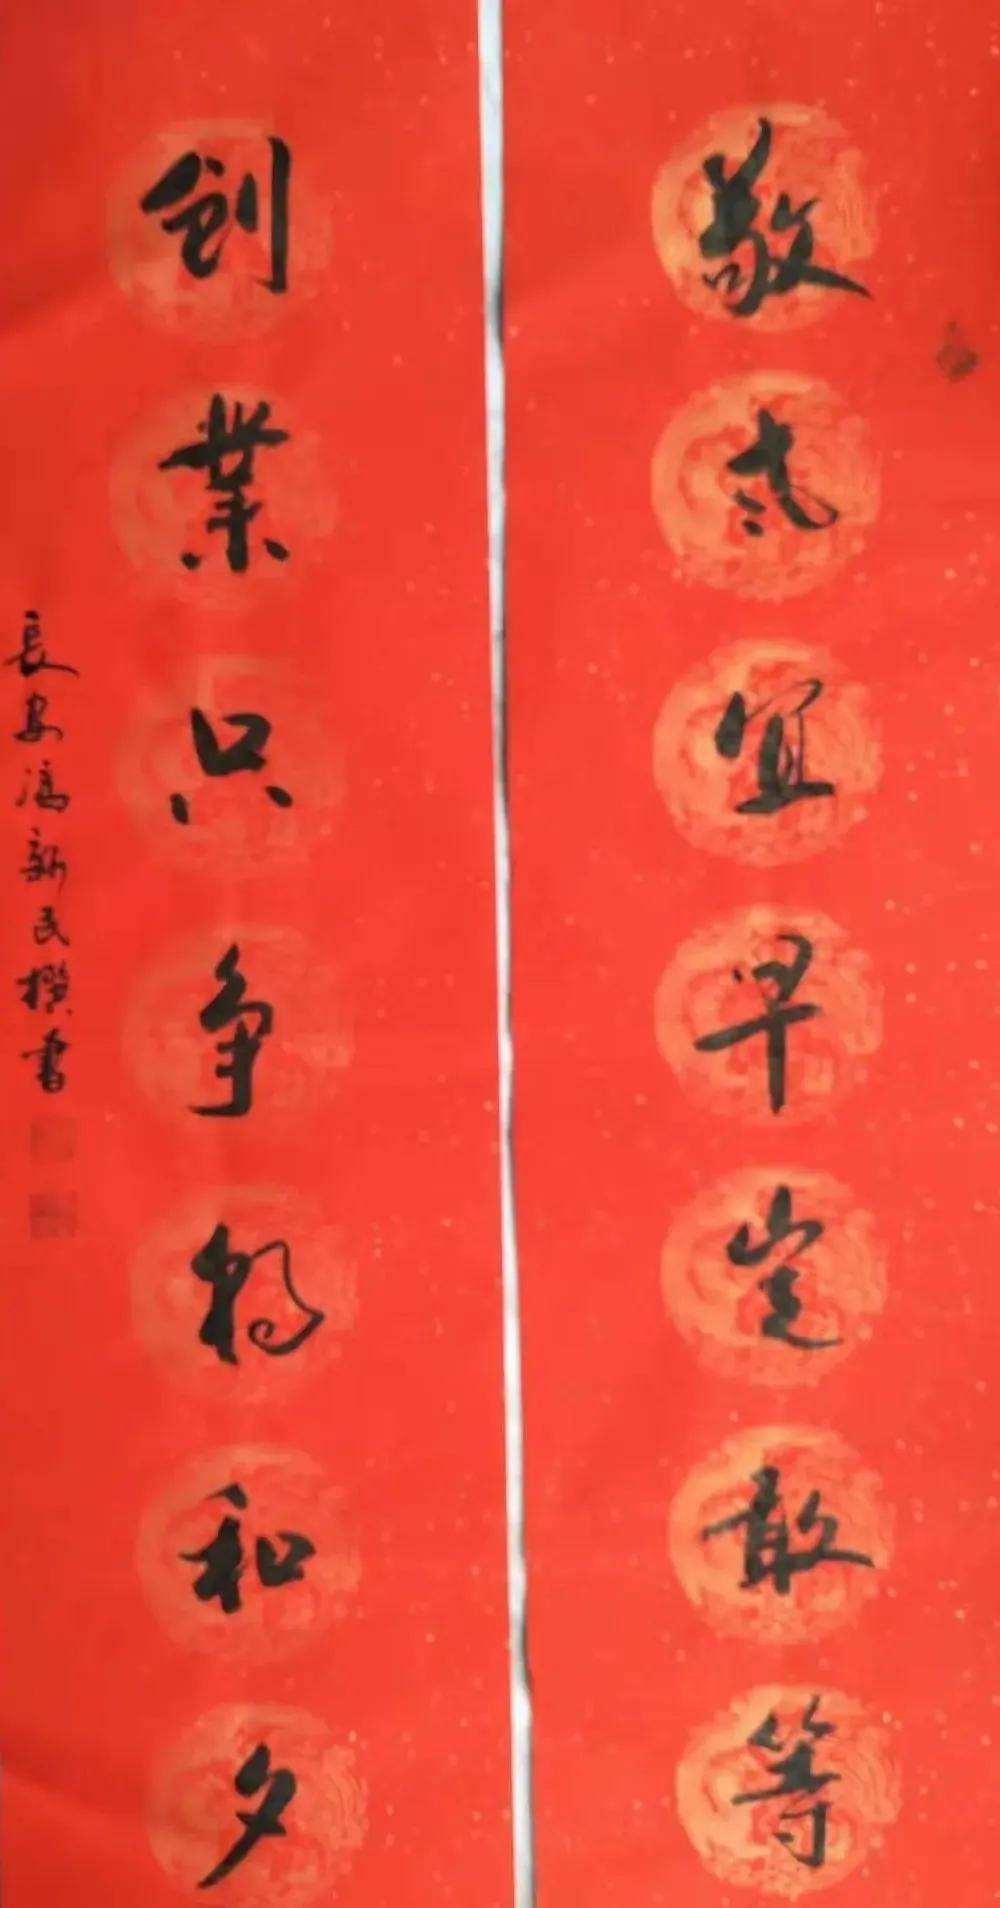 敬老宜早豈敢等
創業只争朝和夕
長安馮新民撰書